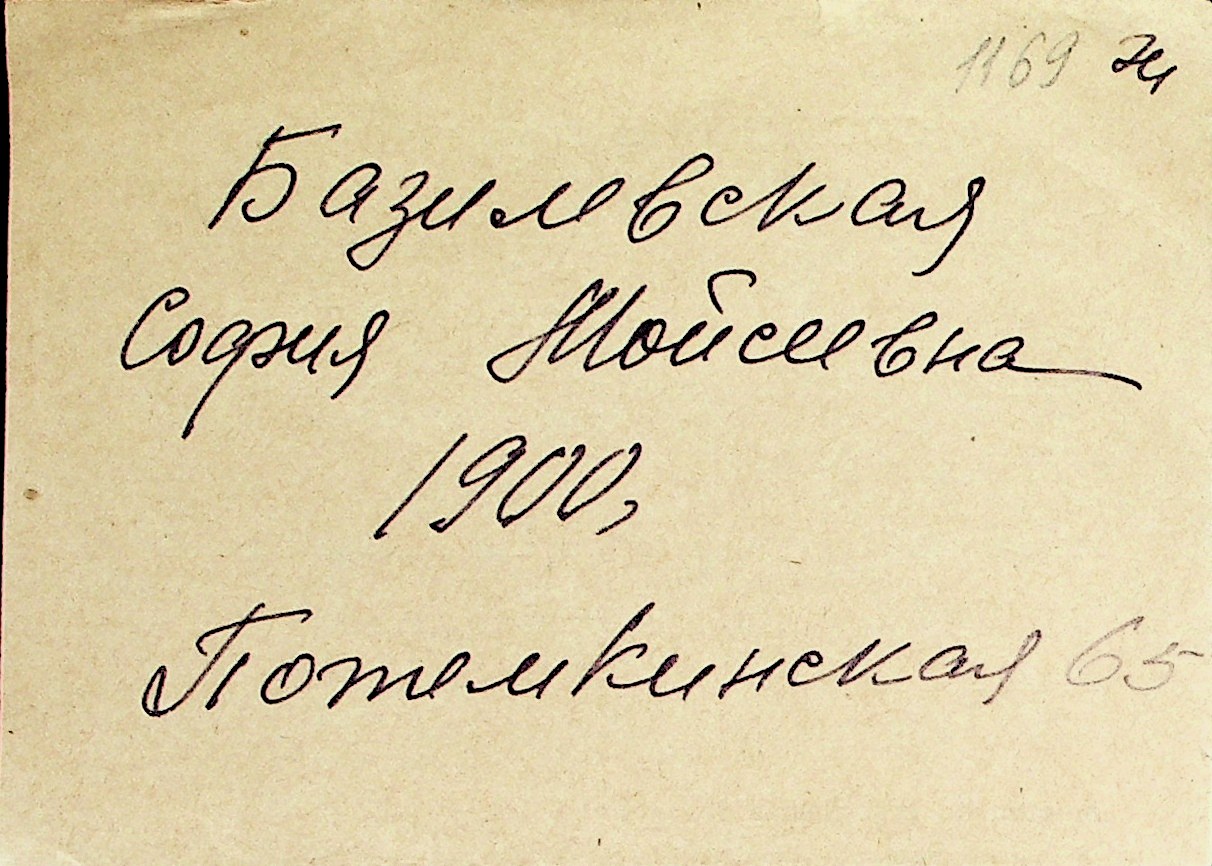 1169 Ж
Базилевская
София Мойсеевна
1900,
Потемкинская 65